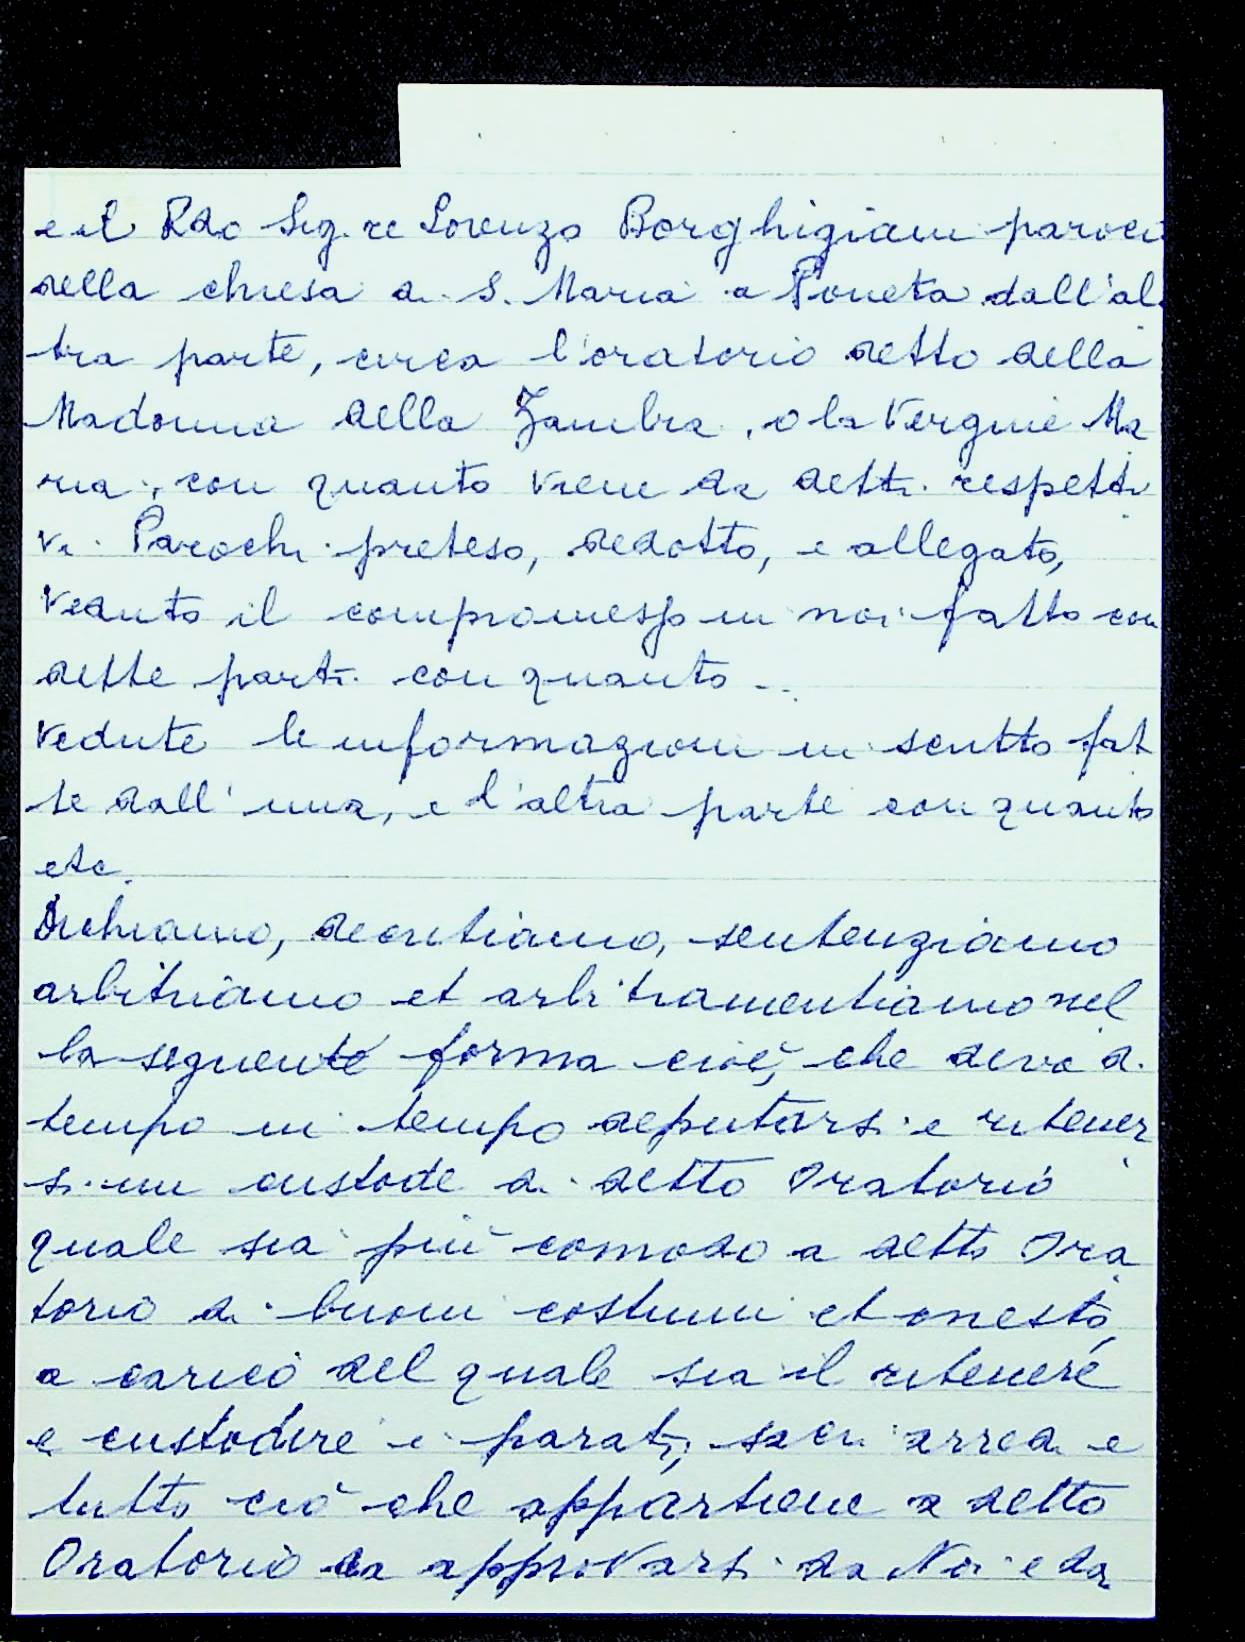 e il Rdo Sig.re Lorenzo Borghigiani paroco
della chiesa di S. Maria a Poneta dall'al
tra parte, circa l'oratorio detto della
Madonna della Zambra, o la Vergine Ma
ria, con quanto viene da detti respetti
vi Parochi preteso, dedotto, e allegato,
Veduto il compromesso in noi fatto con
dette parti con quanto ...
Vedute le informazioni in scritto fat
te dall'una, e l'altra parte con quanto
etc.
Dichiamo, decretiamo, sentenziamo
arbitriamo et arbitramentiamo nel
la seguente forma cioè, che deva di
tempo in tempo deputarsi e ritener
si un custode di detto Oratorio
quale sia più comodo a detto Ora
torio di buoni costumi et onestà,
a carico del quale sia il ritenere
e custodire i parati, sacri arredi e
tutto ciò che appartiene a detto
Oratorio da approvarsi da Noi e da